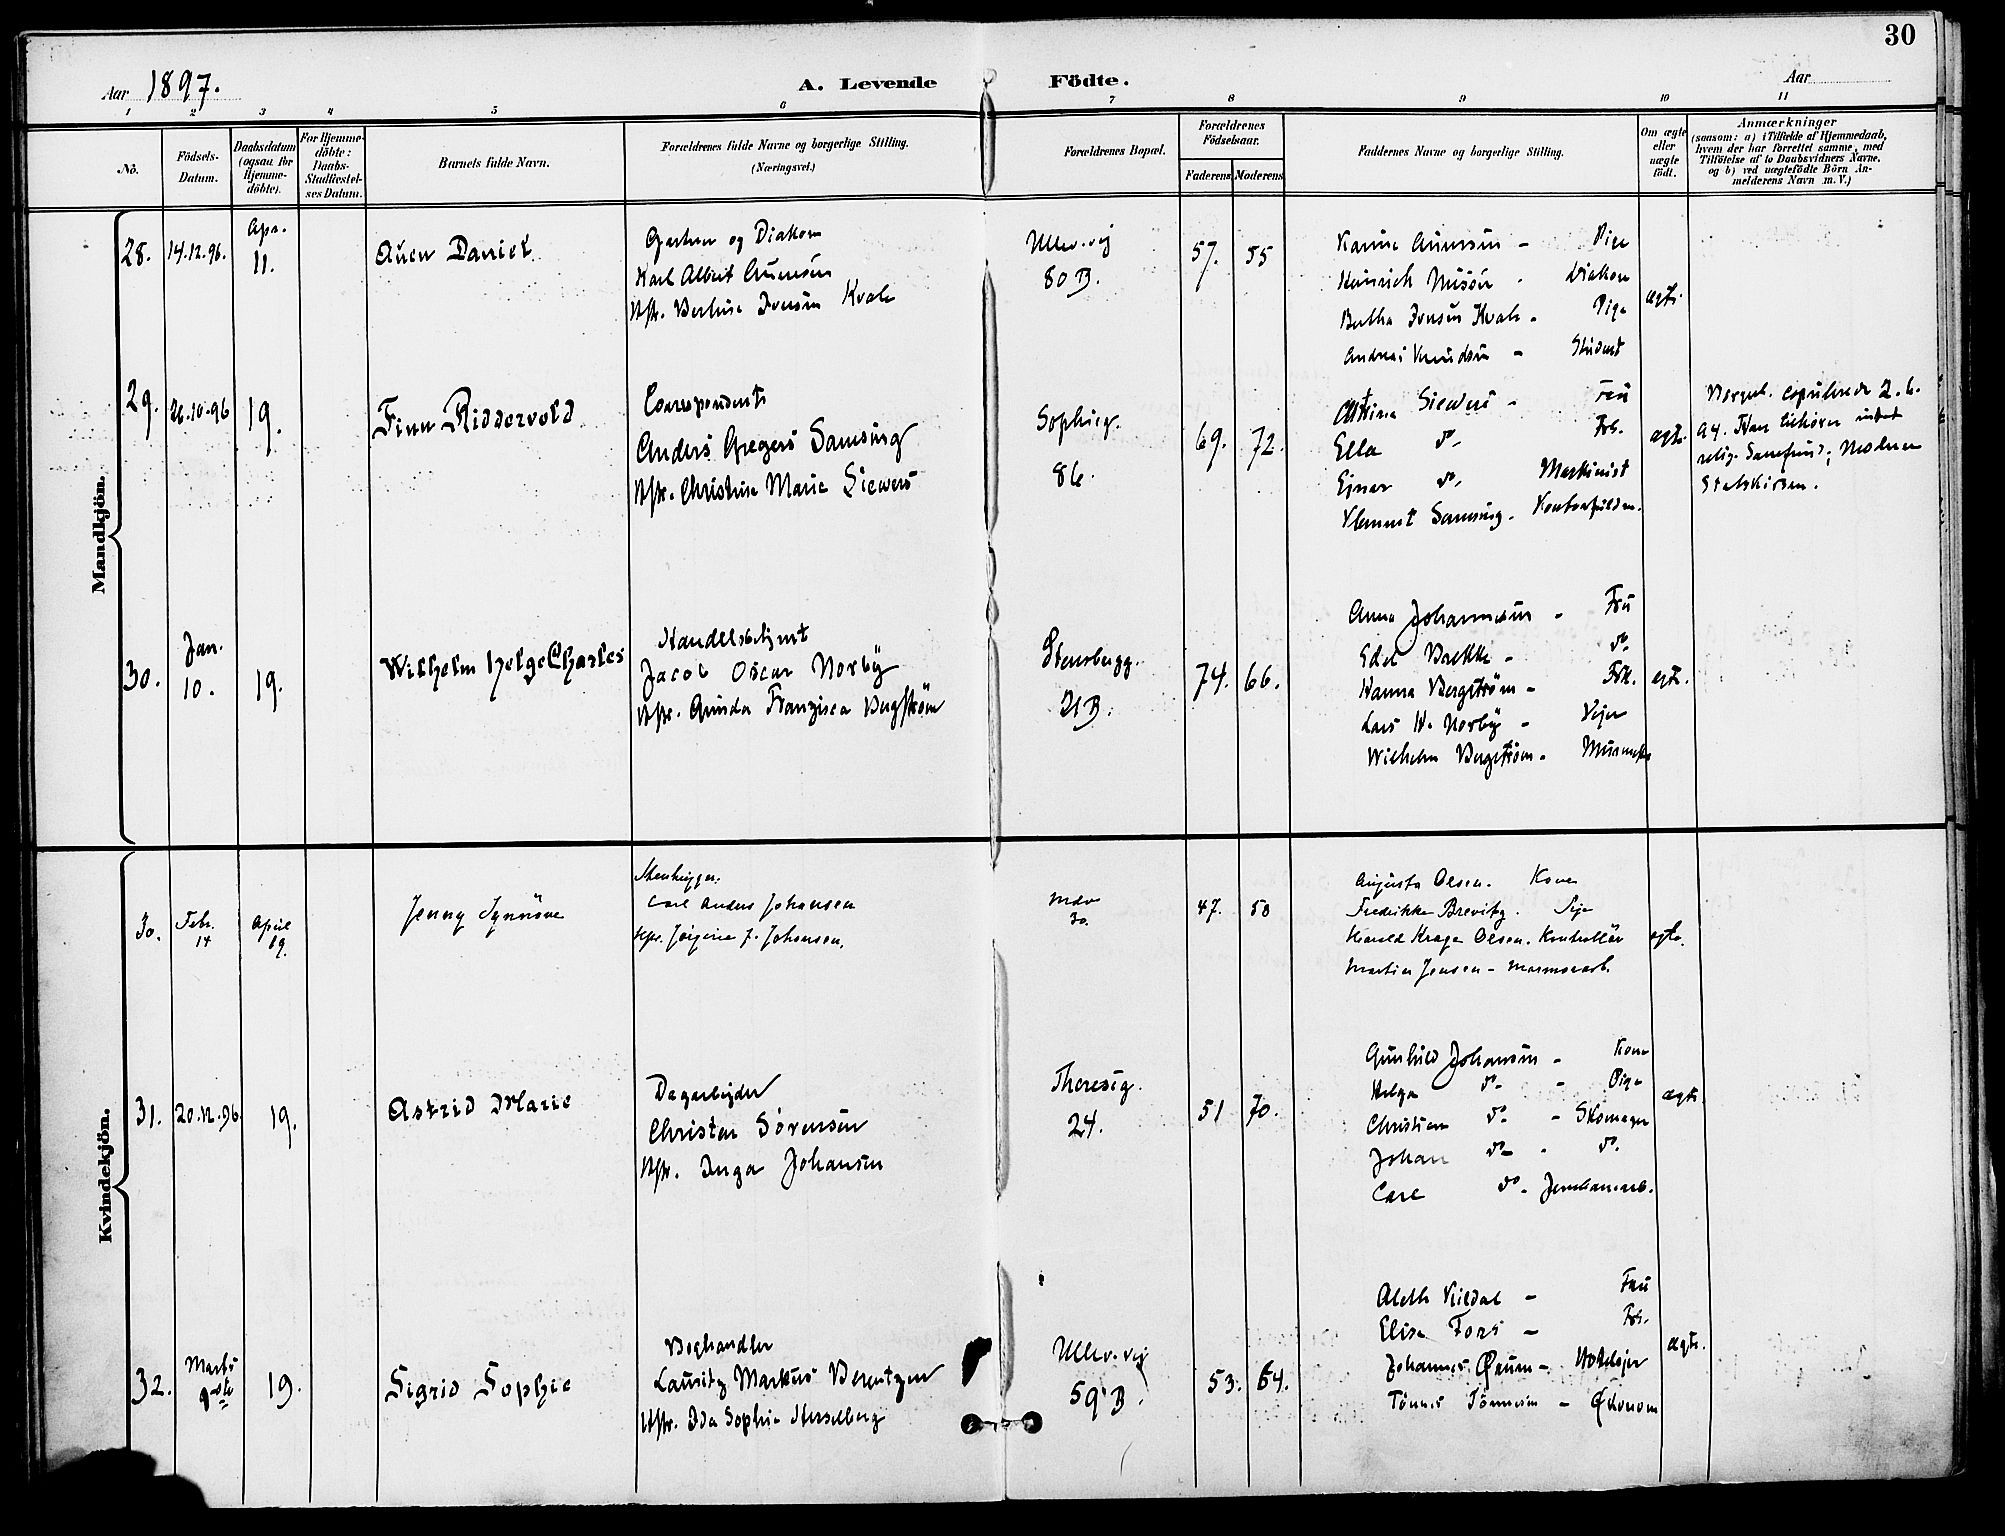 30
Aar 1897.
A. Levende Födte.
Aar
1 2 3 4 5 6 7 8 9 10 11
No.
Födsels-
Datum.
Daabsdatum
(ogsaa for
Hjemme-
döbte).
For Hjemme-
döbte:
Daabs-
Stadfæstel-
ses Datum.
Barnets fulde Navn.
Forældrenes fulde Navne og borgerlige Stilling.
(Næringsvei.)
Forældrenes Bopæl.
Forældrenes
Födselsaar.
Faderens Moderens
Faddernes Navne og borgerlige Stilling.
Om ægte
eller
uægte
födt.
Anmærkninger
(saasom: a) i Tilfælde af Hjemmedaab,
hvem der har forrettet samme, med
Tilföielse af to Daabsvidners Navne,
og b) ved uægtefödte Börn An-
melderens Navn m. V.)
Mandkjön.
28.
14.12.96.
Apr.
11.
Daniel
Gartner og Diakon
Karl Albert
Hstr. Iversen Kvale
Ullev.vej
80 B.
57. 55
Karine - Pige
Heinrich - Diakon
Bertha Iversen Kvale - Pige
Andreas Knudsen - Student
ægte
29.
26.10.96
19.
Finn Riddervold
Correspondent
Anders Gregers Samsing
Hstr. Christine Marie Siewers
Sophieg.
86.
69. 72.
Siewers - Fru
Ella do - Frk.
Ejnar do - Maskinist
Samsing - Kontorfuldm.
ægte
Borgerl. copulerede 2.6.
94. Han tilhører intet
relig. Samfund; Moderen
Statskirken.
30.
Jan.
10.
19.
Wilhelm Helge Charles
Handelsbetjent
Jacob Oscar Norby
Hstr. Gunda Franzisca Bergstrøm
Stensbergg.
21 B.
74. 66.
Anna Johannesen - Fru
Edel Bakke - do
Hanna Bergstrøm - Frk.
Lars H. Norby - Vejer
Wilhelm Bergstrøm - Murmester
ægte.
Kvindekjön.
30.
Febr.
14
April
19.
Jenny Synnöve
Stenhugger.
Carl Anders Johansen
Hstr. Jörgine J. Johansen.
30.
47. 58
Augusta Olsen. Kone
Fredrikke Brevitz. Pige
Harald Krage Olsen. Kontrollör
Martin Jensen - Marmorarb.
ægte.
31.
20.12.96.
19.
Astrid Marie
Dagarbejder
Christen Sörensen
Hstr. Inga Johansen
Theresesg.
24.
51 70.
Gunhild Johansen - Kone
Helga do - Pige
Christian do - Skomager
Johan do - do
Carl do - Jernbanearb.
ægte
32.
Marts
9de
19.
Sigrid Sophie
Boghandler
Lauritz Markus Berentzen
Hstr. Ida Sophie Hesselberg
Ullev.vej
59 B.
53. 64.
Aleth Kildal - Fru
Elise Fors - Frk.
Johannes Ørum - Hotelejer
Tönnes Tönnesen - Økonom
ægte.